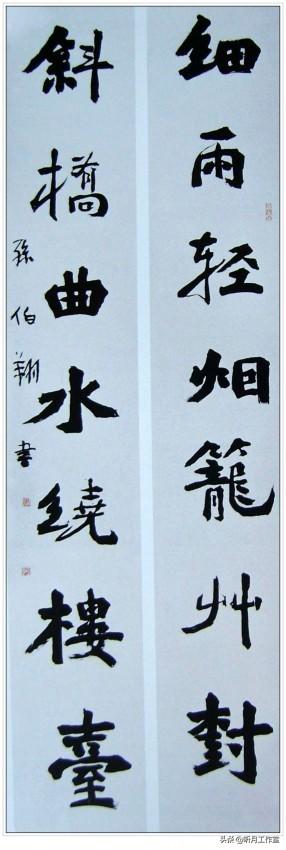 細雨轻烟籠艸樹
斜橋曲水繞樓臺
孫伯翔書
头条@听月工作室